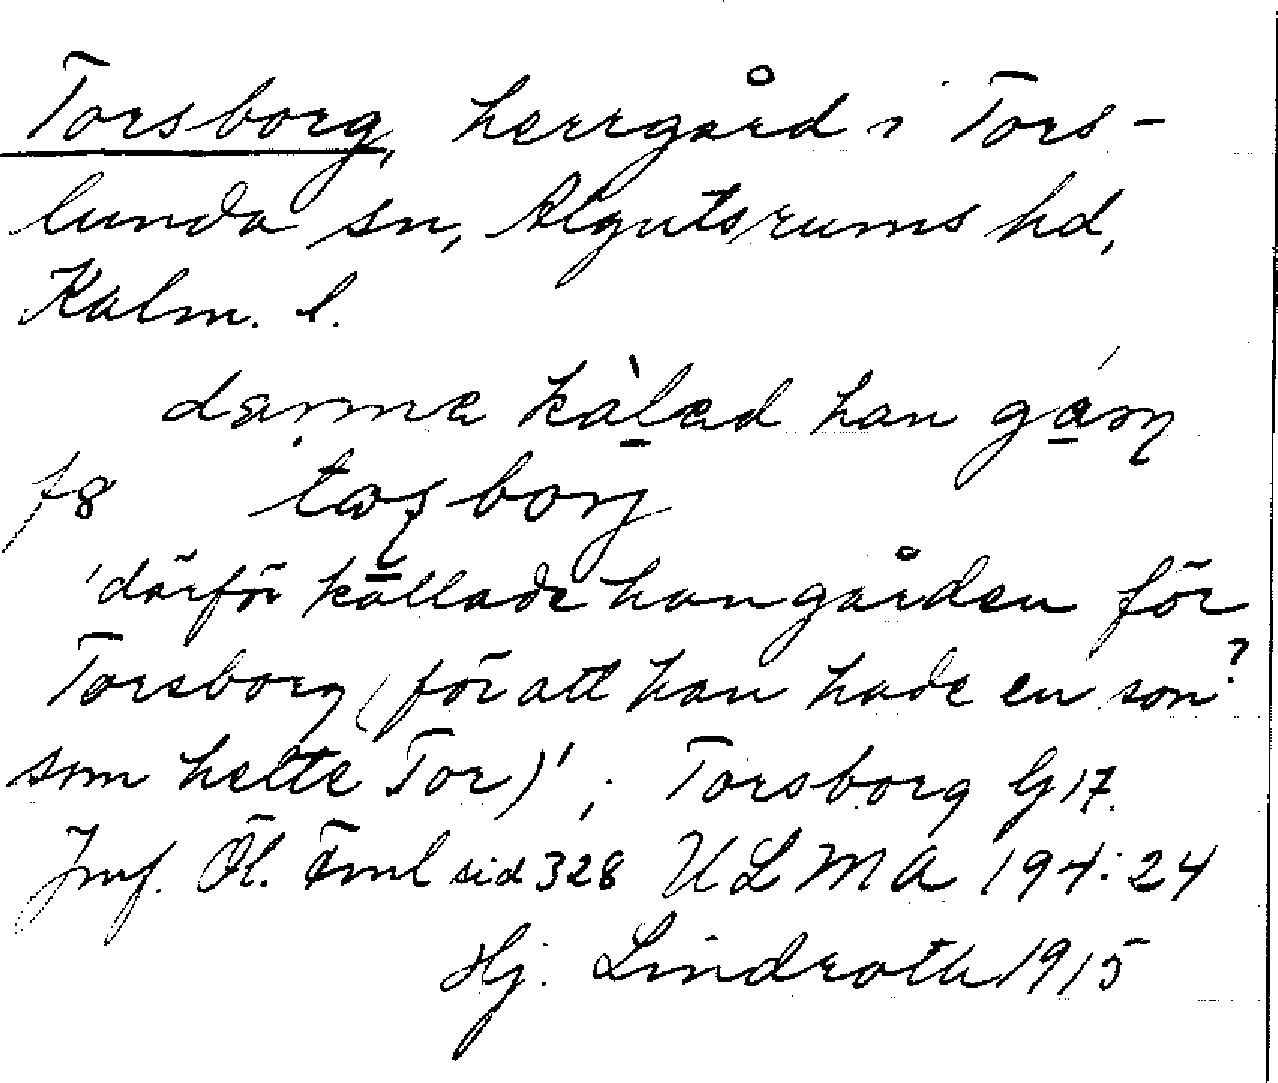 Torsborg, herrgård i Tors-
lunda sn, Algutsrums hd,
Kalm. l.
darme kàlad han gám
f8 tosborj
'därför kallade han gården för
Torsborg (för att han hade en son?
som hette Tor)'; Torsborg G 17.
Jmf. Öl. Fml sid 328 ULMA 194:24
Hj. Lindroth 1915